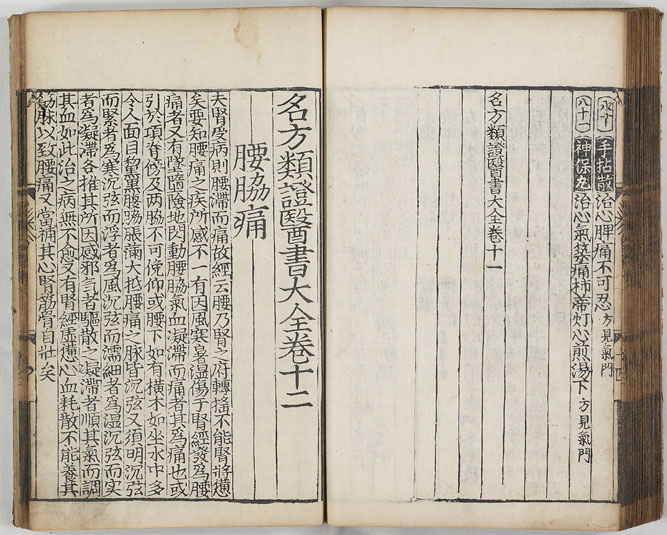 八十 手拈散 治心脾痛不可忍 方見氣門
八十一 神保丸 治心氣築痛柿蒂灯心煎湯下 方見氣門
名方類證醫書大全卷十一
名方類證醫書大全卷十二
腰脇痛
夫腎受病則腰滯而痛故經云腰乃腎之府轉搖不能腎將憊
矣要知腰痛之疾所感不一有因風寒暑湿傷于腎經發爲腰
痛者又有墜墮險地閃動腰脇氣血凝滯而痛者其爲痛也或
引於項脊傍及兩脇不可俛仰或腰下如有橫木如坐水中多
令人面目黧黑腹脇脹滿大抵腰痛之脉皆沉弦又須明沉弦
而緊者爲寒沉弦而浮者爲風沉弦而濡細者爲湿沉弦而实
者爲凝滯各推其所因感邪气者驅散之凝滯者順其氣而調
其血如此治之病無不愈又有腎經虛憊心血耗散不能養其
筋脉以致腰痛又當補其心腎筋骨自壯矣